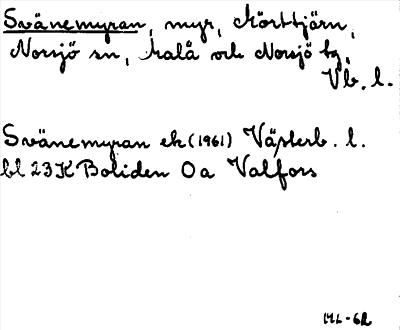 Svänemyran, myr, Mörttjärn,
Norsjö sn, Malå och Norsjö tg,
Vb. l.
Svänemyran ek (1961) Västerb. l.
bl 23K Boliden 0a Valfors